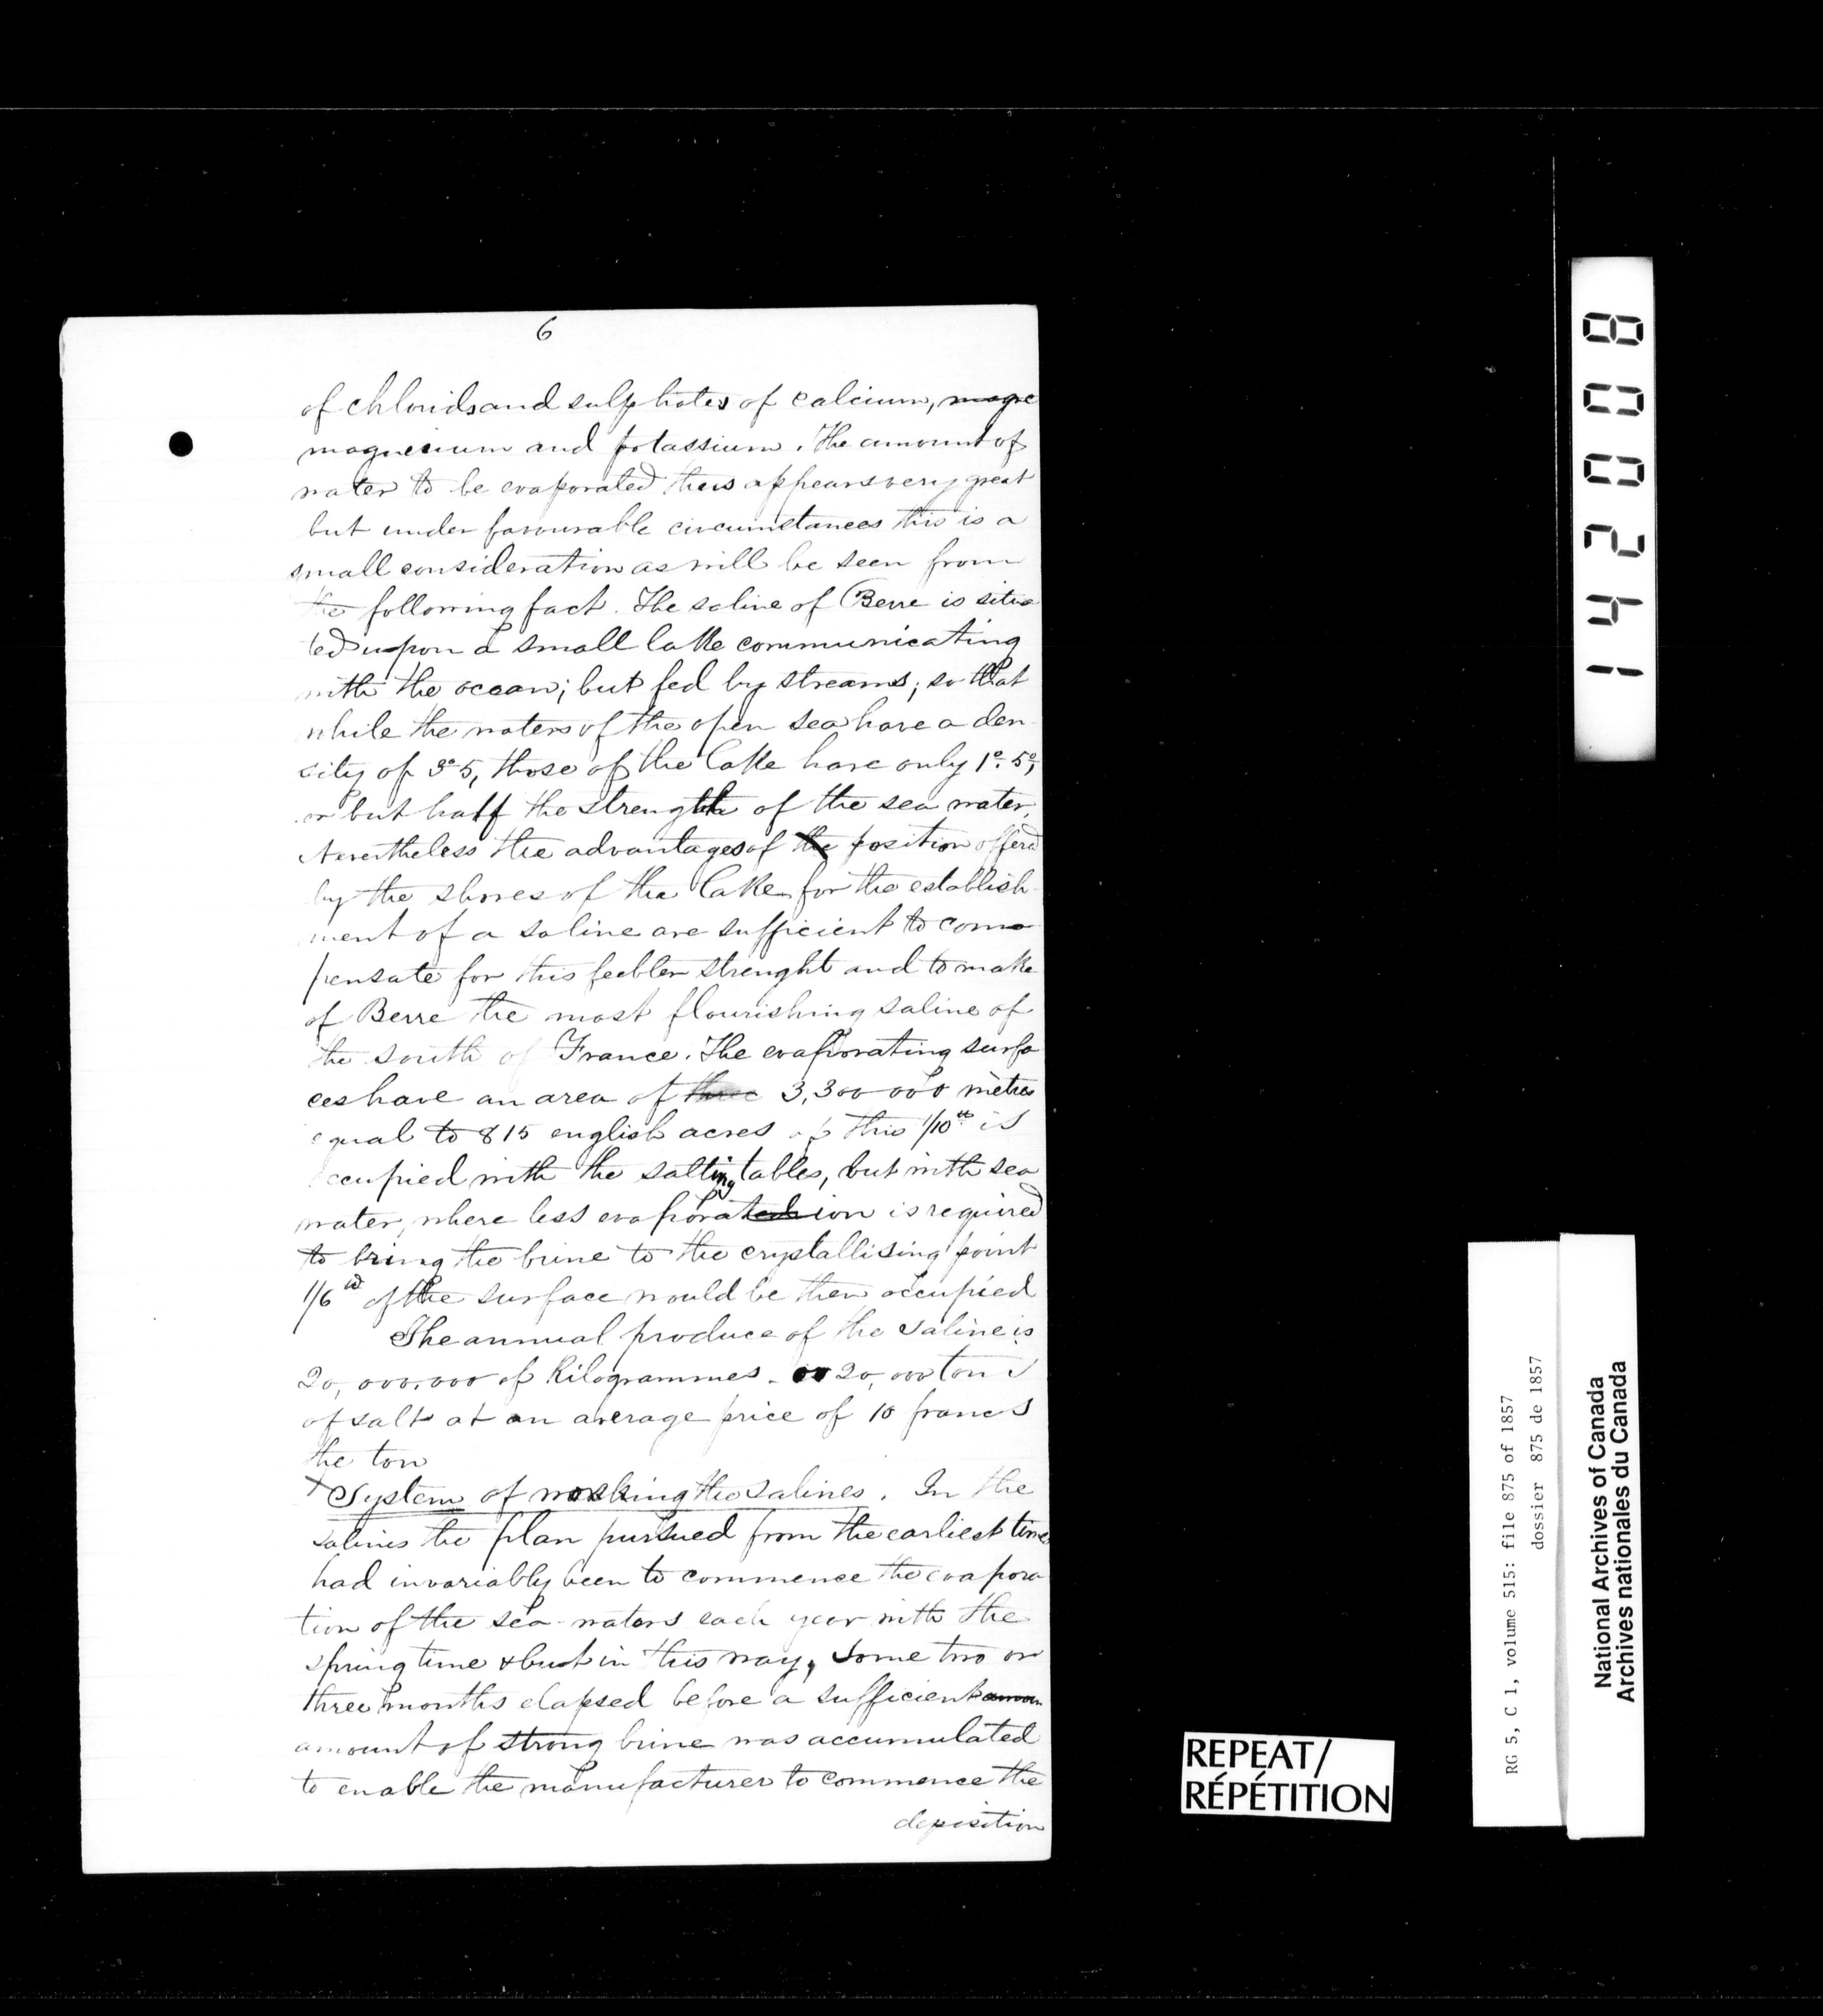 6
of chlorids and sulphates of calcium, magne
magnesium and potassium. The amount of
water to be evaporated thus appears very great
but under favourable circumstances this is a
small consideration as will be seen from
the following fact. The saline of Berre is situa
ted upon a small lake communicating
with the ocean; but fed by streams; so that
while the waters of the open sea have a den
sity of 3°5, those of the lake have only 1°. 5°,
or but half the strength of the sea water,
Nevertheless the advantages of the position offered
by the shores of the lake for the establish-
ment of a saline are sufficient to com
pensate for this feebler strenght and to make
of Berre the most flourishing saline of
the south of France. The evaporating surfa
ces have an area of three 3,300 000 mètres
equal to 815 english acres of this 1/10th is
occupied with the salting tables, but with sea
water, where less evaporation is required
to bring the brine to the crystallising point
1/6 of the surface would be then occupied
The annual produce of the saline is
20,000.000 of Kilogrammes. or 20,000 tons
of salt at an average price of 10 francs
the ton
System of working the salines. In the
salines the plan pursued from the earliest times
had invariably been to commence the evapora
tion of the sea-waters each year with the
spring time & but in this way, some two or
three months elapsed before a sufficient amoun
amount of strong brine was accumulated
to enable the manufacturer to commence the
deposition
142008
REPEAT/
RÉPÉTITION
RG 5, C 1, volume 515: file 875 of 1857
dossier 875 de 1857
National Archives of Canada
Archives nationales du Canada